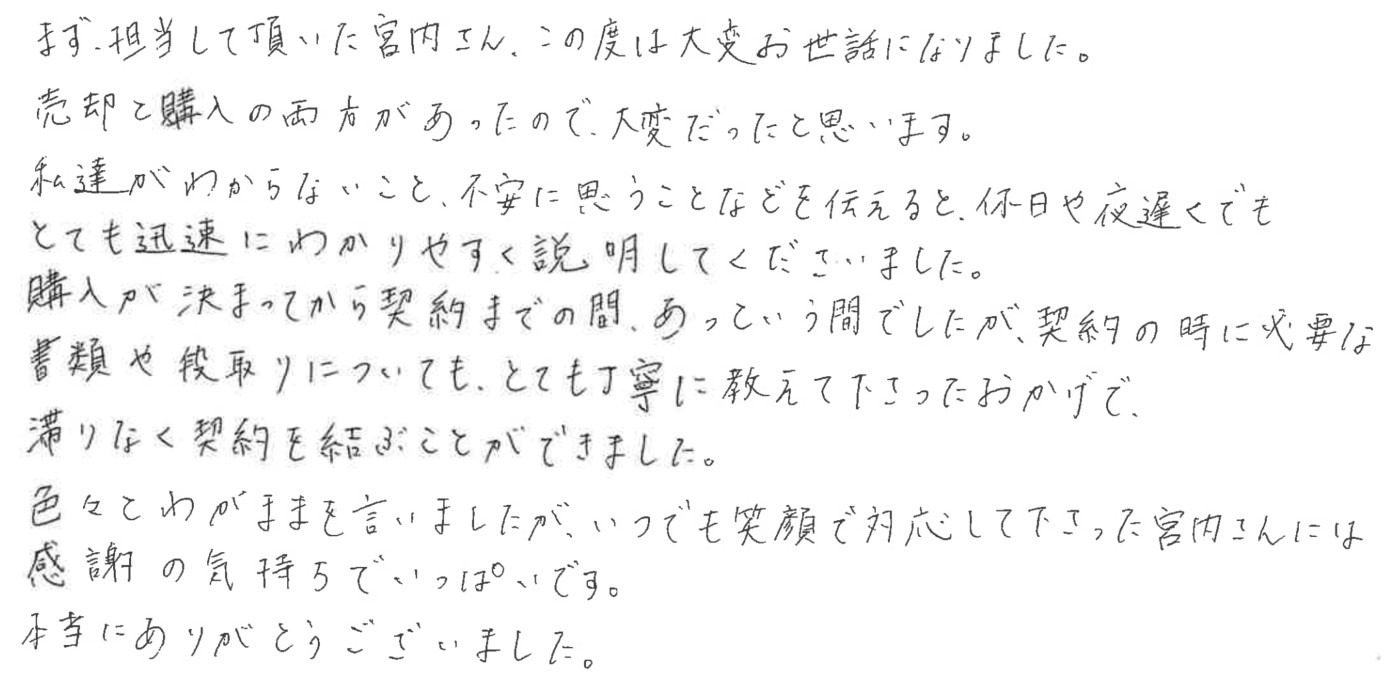 まず、担当して頂いた宮内さん、この度は大変お世話になりました。
売却と購入の両方があったので、大変だったと思います。
私達がわからないこと、不安に思うことなどを伝えると、休日や夜遅くでも
とても迅速にわかりやすく説明してくださいました。
購入が決まってから契約までの間、あっという間でしたが、契約の時に必要な
書類や段取りについても、とても丁寧に教えて下さったおかげで、
滞りなく契約を結ぶことができました。
色々とわがままを言いましたが、いつでも笑顔で対応して下さった宮内さんには
感謝の気持ちでいっぱいです。
本当にありがとうございました。